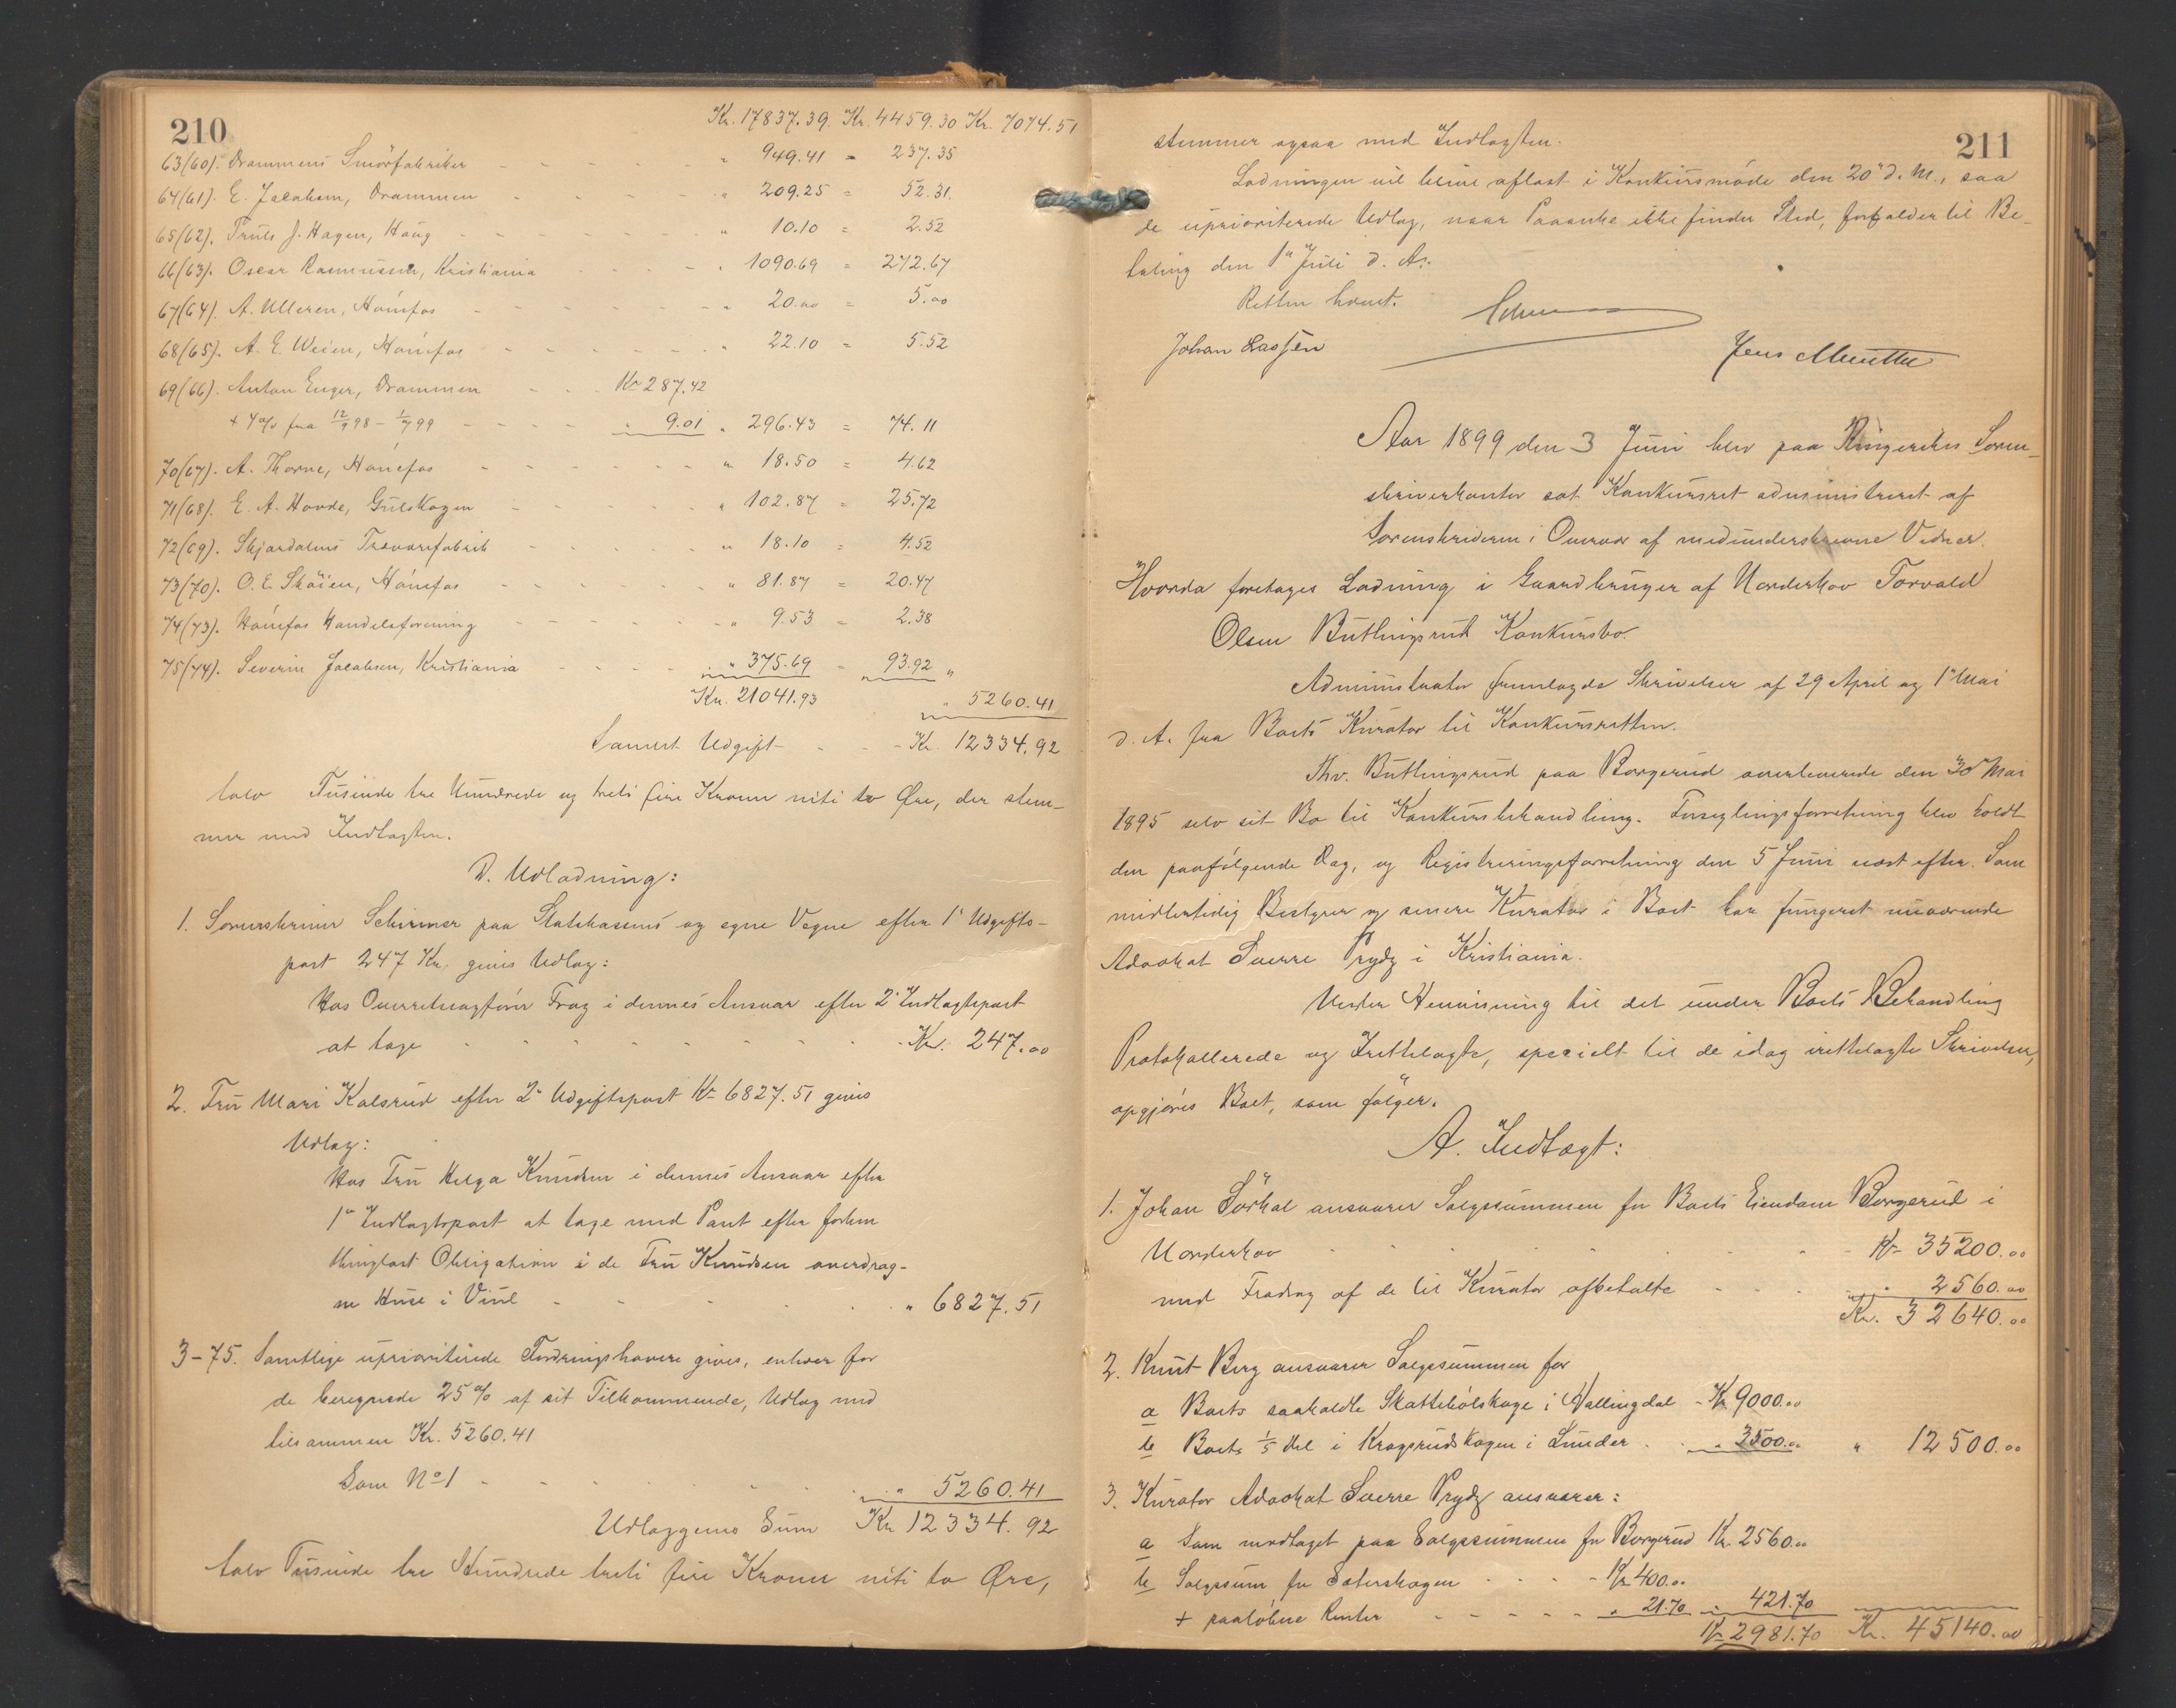 210
Kr. 17837.39. Kr. 4459.30 Kr. 7074.51
63(60). Drammens Smörfabriker - - - " 949.41 = 237.35
64(61). E. Jacobsen, Drammen - - - " 209.25 = 52.31.
65(62). Truls J. Hagen, Haug - - - " 10.10 = 2.52
66(63). Oscar Rasmussen, Kristiania - - - " 1090.69 = 272.67
67(64). A. Ulleren, Hönefos - - - " 20.00 = 5.00
68(65). A. E. Weien, Hönefos - - - " 22.10 = 5.52
69(66). Anton Enger, Drammen - - Kr 287.42
+ 4 % fra 12/9 98 - 1/7 99 - - - " 9.01 " 296.43 = 74.11
70(67). A. Thorne, Hönefos - - - " 18.50 = 4.62
71(68). E. A. Hovde, Gulskogen - - - " 102.87 = 25.72
72(69). Skjærdalens Trævarefabrik - - - " 18.10 = 4.52
73(70). O. E. Sköien, Hönefos - - - " 81.87 = 20.47
74(73). Hönefos Handelsforening - - - " 9.53 = 2.38
75(74). Severin Jacobsen, Kristiania - - - " 375.69 = 93.92 "
Kr. 21041.93 " 5260.41
Samlet Udgift - - - Kr. 12334.92
tolv Tusinde tre Hundrede og treti fire Kroner niti to Øre, der stem-
mer med Indtægten.
D. Udlodning:
1. Sorenskriver Schirmer paa Statskassens og egne Vegne efter 1' Udgifts-
post 247 Kr. gives Udlæg:
Hos Overretssagfører Frog i dennes Ansvar efter 2' Indtægtspost
at tage - - - Kr. 247.00
2. Fru Mari Kalsrud efter 2' Udgiftspost Kr 6827.51 gives
Udlæg:
Hos Fru Helga Knudsen i dennes Ansvar efter
1' Indtægtspost at tage med Pant efter forhen
thinglæst Obligation i de Fru Knudsen overdrag-
ne Huse i Viul - - - " 6827.51
3-75. Samtlige uprioriterede Fordringshavere gives, enhver for
de beregnede 25 % af sit Tilkommende, Udlæg med
tilsammen Kr. 5260.41
Som No 1 - - - " 5260.41
Udlæggenes Sum Kr 12334.92
tolv Tusinde tre Hundrede treti fire Kroner niti to Øre,
211
stemmer ogsaa med Indtægten.
Lodningen vil blive aflæst i Konkursmöde den 20' d. M., saa
de uprioriterede Udlæg, naar Paaanke ikke finder Sted, forfalder til Be-
taling den 1' Juli d. A.
Retten hævet.
Johan Lassen
Jens Meinthe
Aar 1899 den 3 Juni blev paa Ringerikes Soren-
skriverkontor sat Konkursret administreret af
Sorenskriveren i Overvær af medunderskrevne Vidner.
Hvorda foretages Lodning i Gaardbruger af Norderhov Torvald
Olsen Butlingsrud Konkursbo.
Administrator fremlagde Skrivelser af 29 April og 1' Mai
d. A. fra Boets Kurator til Konkursretten.
Thv. Butlingsrud paa Borgerud overleverede den 30' Mai
1895 selv sit Bo til Konkursbehandling. Forseglingsforretning blev holdt
den paafölgende Dag, og Registreringsforretning den 5' Juni næst efter. Som
midlertidig Bestyrer og senere Kurator i Boet har fungeret nuværende
Advokat Sverre Prydz i Kristiania.
Under Henvisning til det under Boets Behandling
Protokollerede og Irettelagte, specielt til de idag irettelagte Skrivelser,
opgjöres Boet, som fölger.
A. Indtægt:
1. Johan Sörhol ansvarer Salgssummen for Boets Eiendom Borgerud i
Norderhov - - - Kr 35200.00
med Fradrag af de til Kurator afbetalte - - - " 2560.00
Kr. 32640.00
2. Knut Berg ansvarer Salgssummen for
a Boets saakaldte Skattebölskoge i Hallingdal - Kr 9000.00
b Boets 1/5 Del i Kragsrudskogen i Lunder - " 3500.00 " 12500.00
3. Kurator Advokat Sverre Prydz ansvarer:
a Som modtaget paa Salgssummen for Borgerud Kr. 2560.00
b Salgssum for Sæterskogen - - - Kr 400.00
+ paalöbne Renter - - - " 21.70 " 421.70
Kr 2981.70 Kr. 45140.00